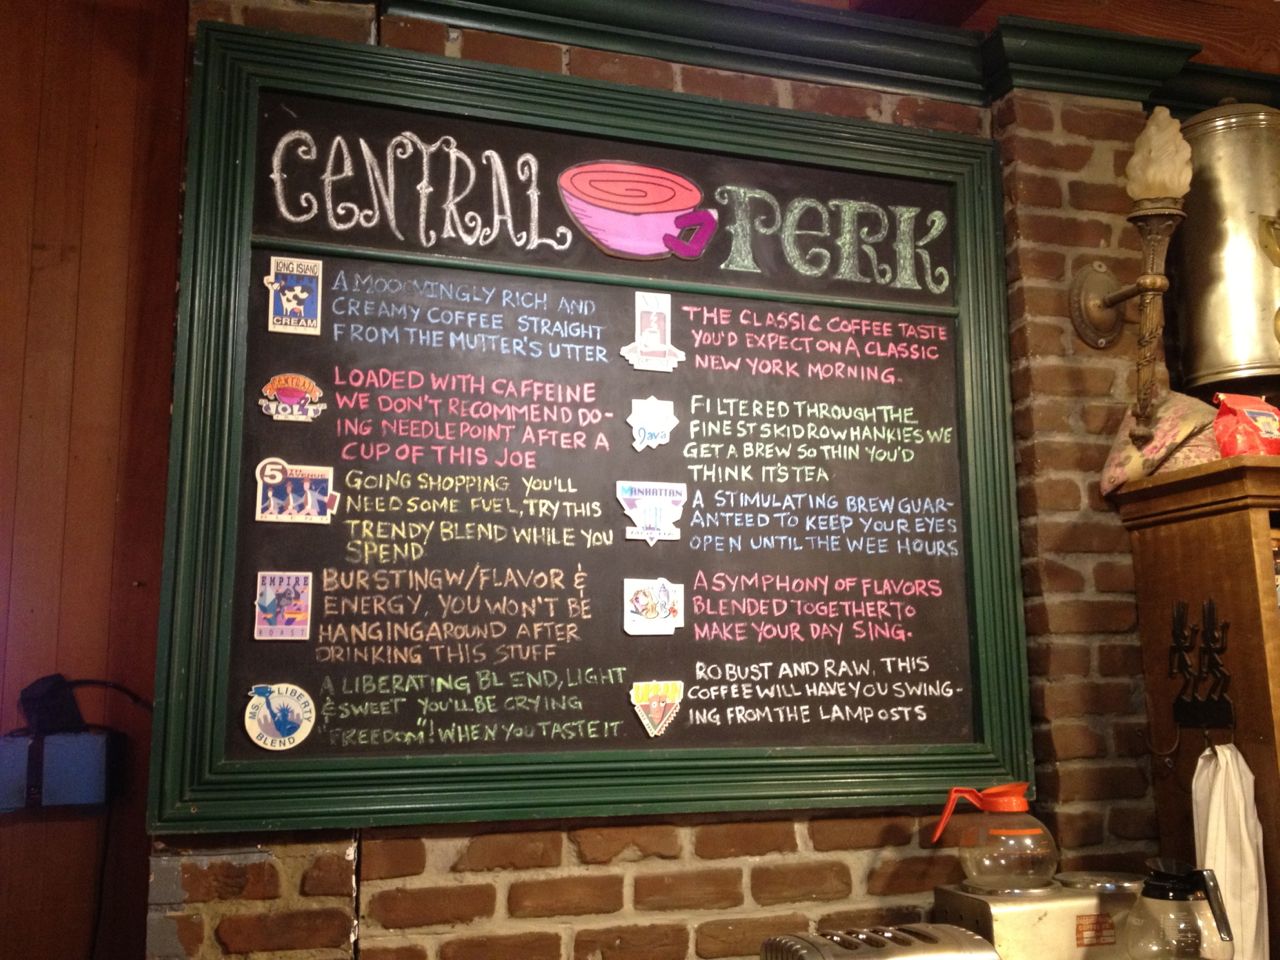 CENTRAL PERK
LONG ISLAND
CREAM
A MOOOMINGLY RICH AND
CREAMY COFFEE STRAIGHT
FROM THE MUTTER'S UTTER
CENTRAL
JOLT
LOADED WITH CAFFEINE
WE DON'T RECOMMEND DO-
ING NEEDLEPOINT AFTER A
CUP OF THIS JOE
5TH AVENUE
BLEND
GOING SHOPPING YOU'LL
NEED SOME FUEL, TRY THIS
TRENDY BLEND WHILE YOU
SPEND
EMPIRE
ROAST
BURSTING W/FLAVOR &
ENERGY, YOU WON'T BE
HANGING AROUND AFTER
DRINKING THIS STUFF
MS. LIBERTY
BLEND
A LIBERATING BLEND, LIGHT
& SWEET YOU'LL BE CRYING
"FREEDOM"! WHEN YOU TASTE IT
THE CLASSIC COFFEE TASTE
YOU'D EXPECT ON A CLASSIC
NEW YORK MORNING.
Java
FILTERED THROUGH THE
FINEST SKIDROW HANKIES WE
GET A BREW SO THIN YOU'D
THINK IT'S TEA
MANHATTAN
A STIMULATING BREW GUAR-
ANTEED TO KEEP YOUR EYES
OPEN UNTIL THE WEE HOURS
A SYMPHONY OF FLAVORS
BLENDED TOGETHER TO
MAKE YOUR DAY SING.
URBAN
ROBUST AND RAW, THIS
COFFEE WILL HAVE YOU SWING-
ING FROM THE LAMPOSTS